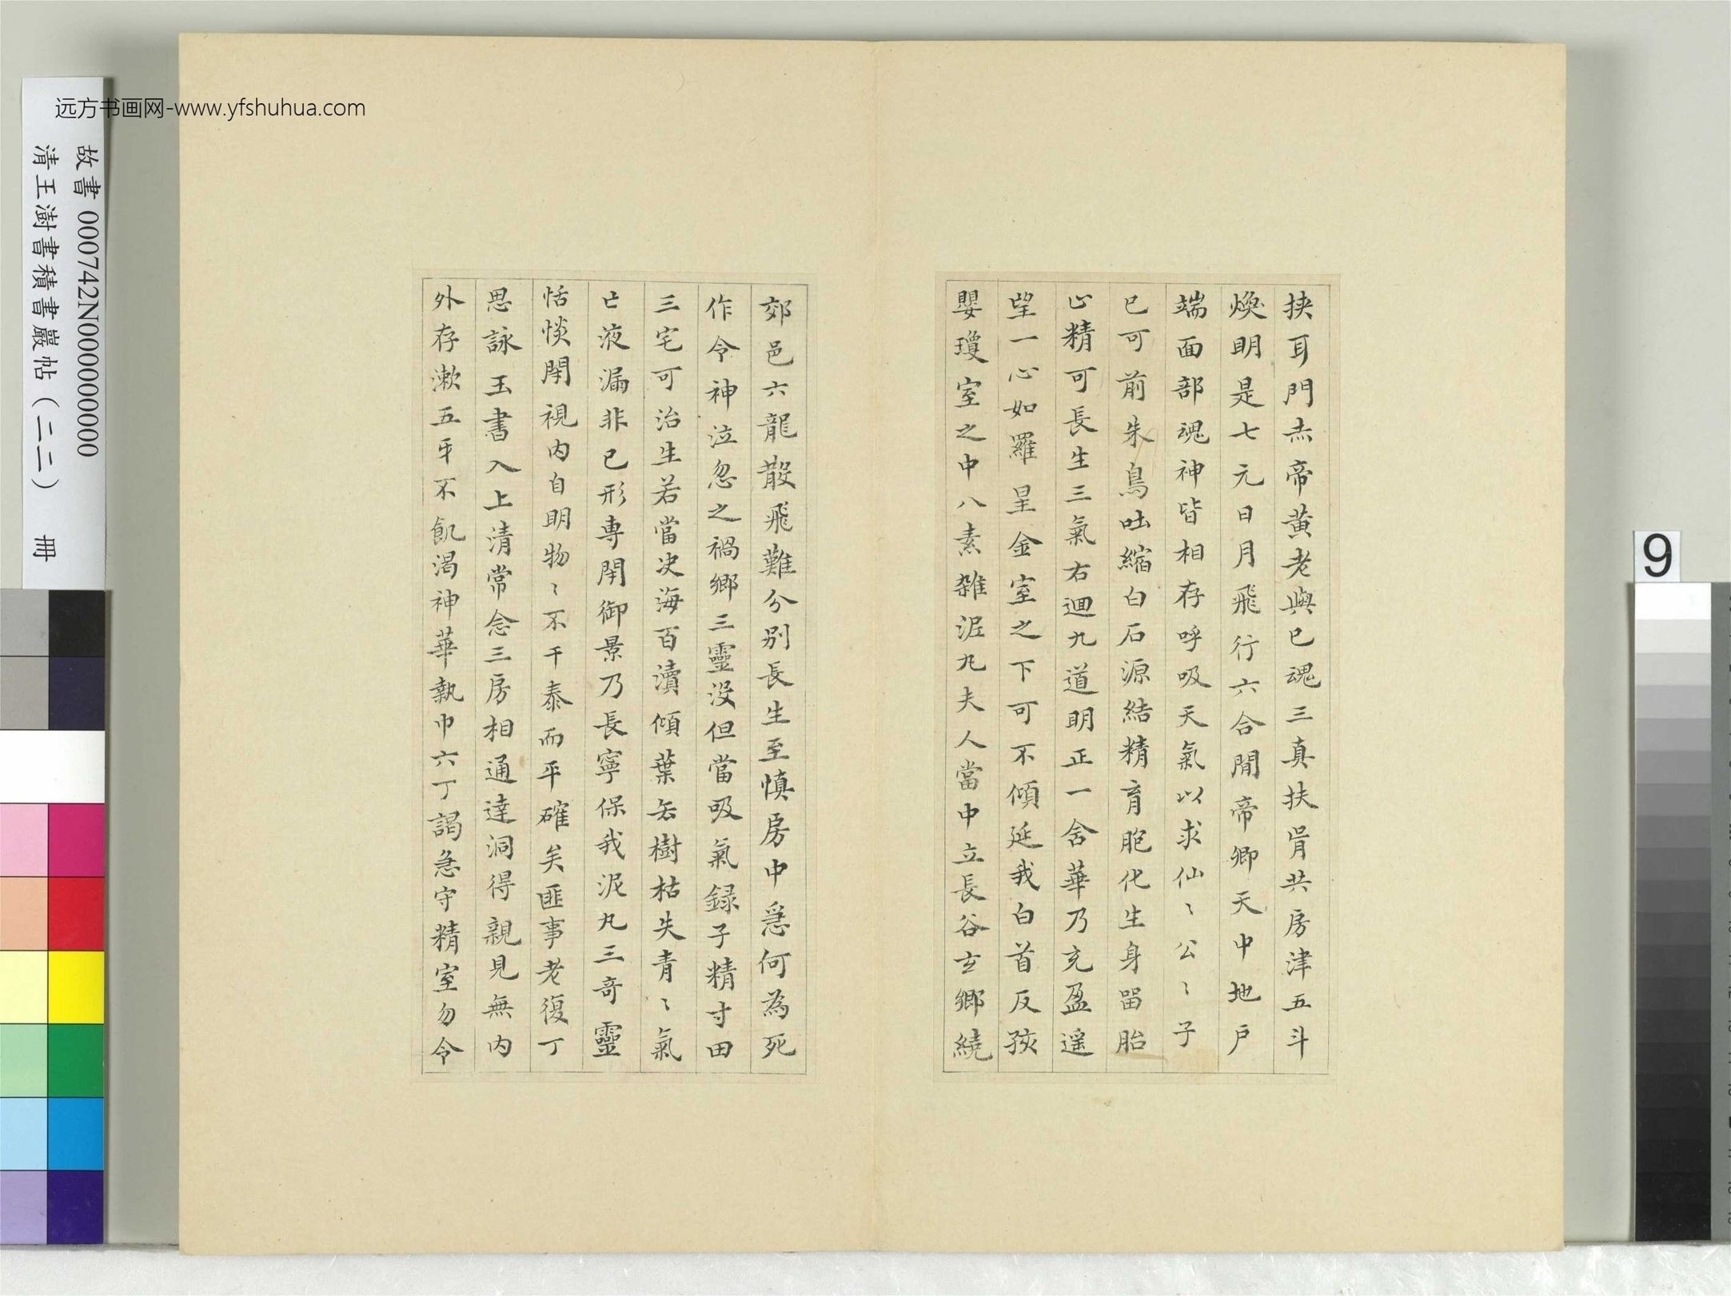 远方书画网-www.yfshuhua.com
故書 000742N000000000
清王澍書積書巖帖（二二） 冊
9
挟耳門赤帝黄老與已魂三真扶胥共房津五斗
煥明是七元日月飛行六合間帝鄉天中地户
端面部魂神皆相存呼吸天氣以求仙〻公〻子
已可前朱鳥吐縮白石源結精育胞化生身留胎
止精可長生三氣右迴九道明正一含華乃充盈遥
望一心如羅星金室之下可不傾延我白首反孩
嬰瓊室之中八素雑泥丸夫人當中立長谷玄鄉繞
郊邑六龍散飛難分别長生至慎房中急何為死
作令神泣忽之禍鄉三靈没但當吸氣録子精寸田
三宅可治生若當决海百瀆傾葉去樹枯失青〻氣
亡液漏非已形専閉御景乃長寧保我泥丸三奇靈
恬惔閉視内自明物〻不干泰而平確矣匪事老復丁
思詠玉書入上清常念三房相通達洞得親見無内
外存漱五牙不飢渴神華執巾六丁謁急守精室勿令